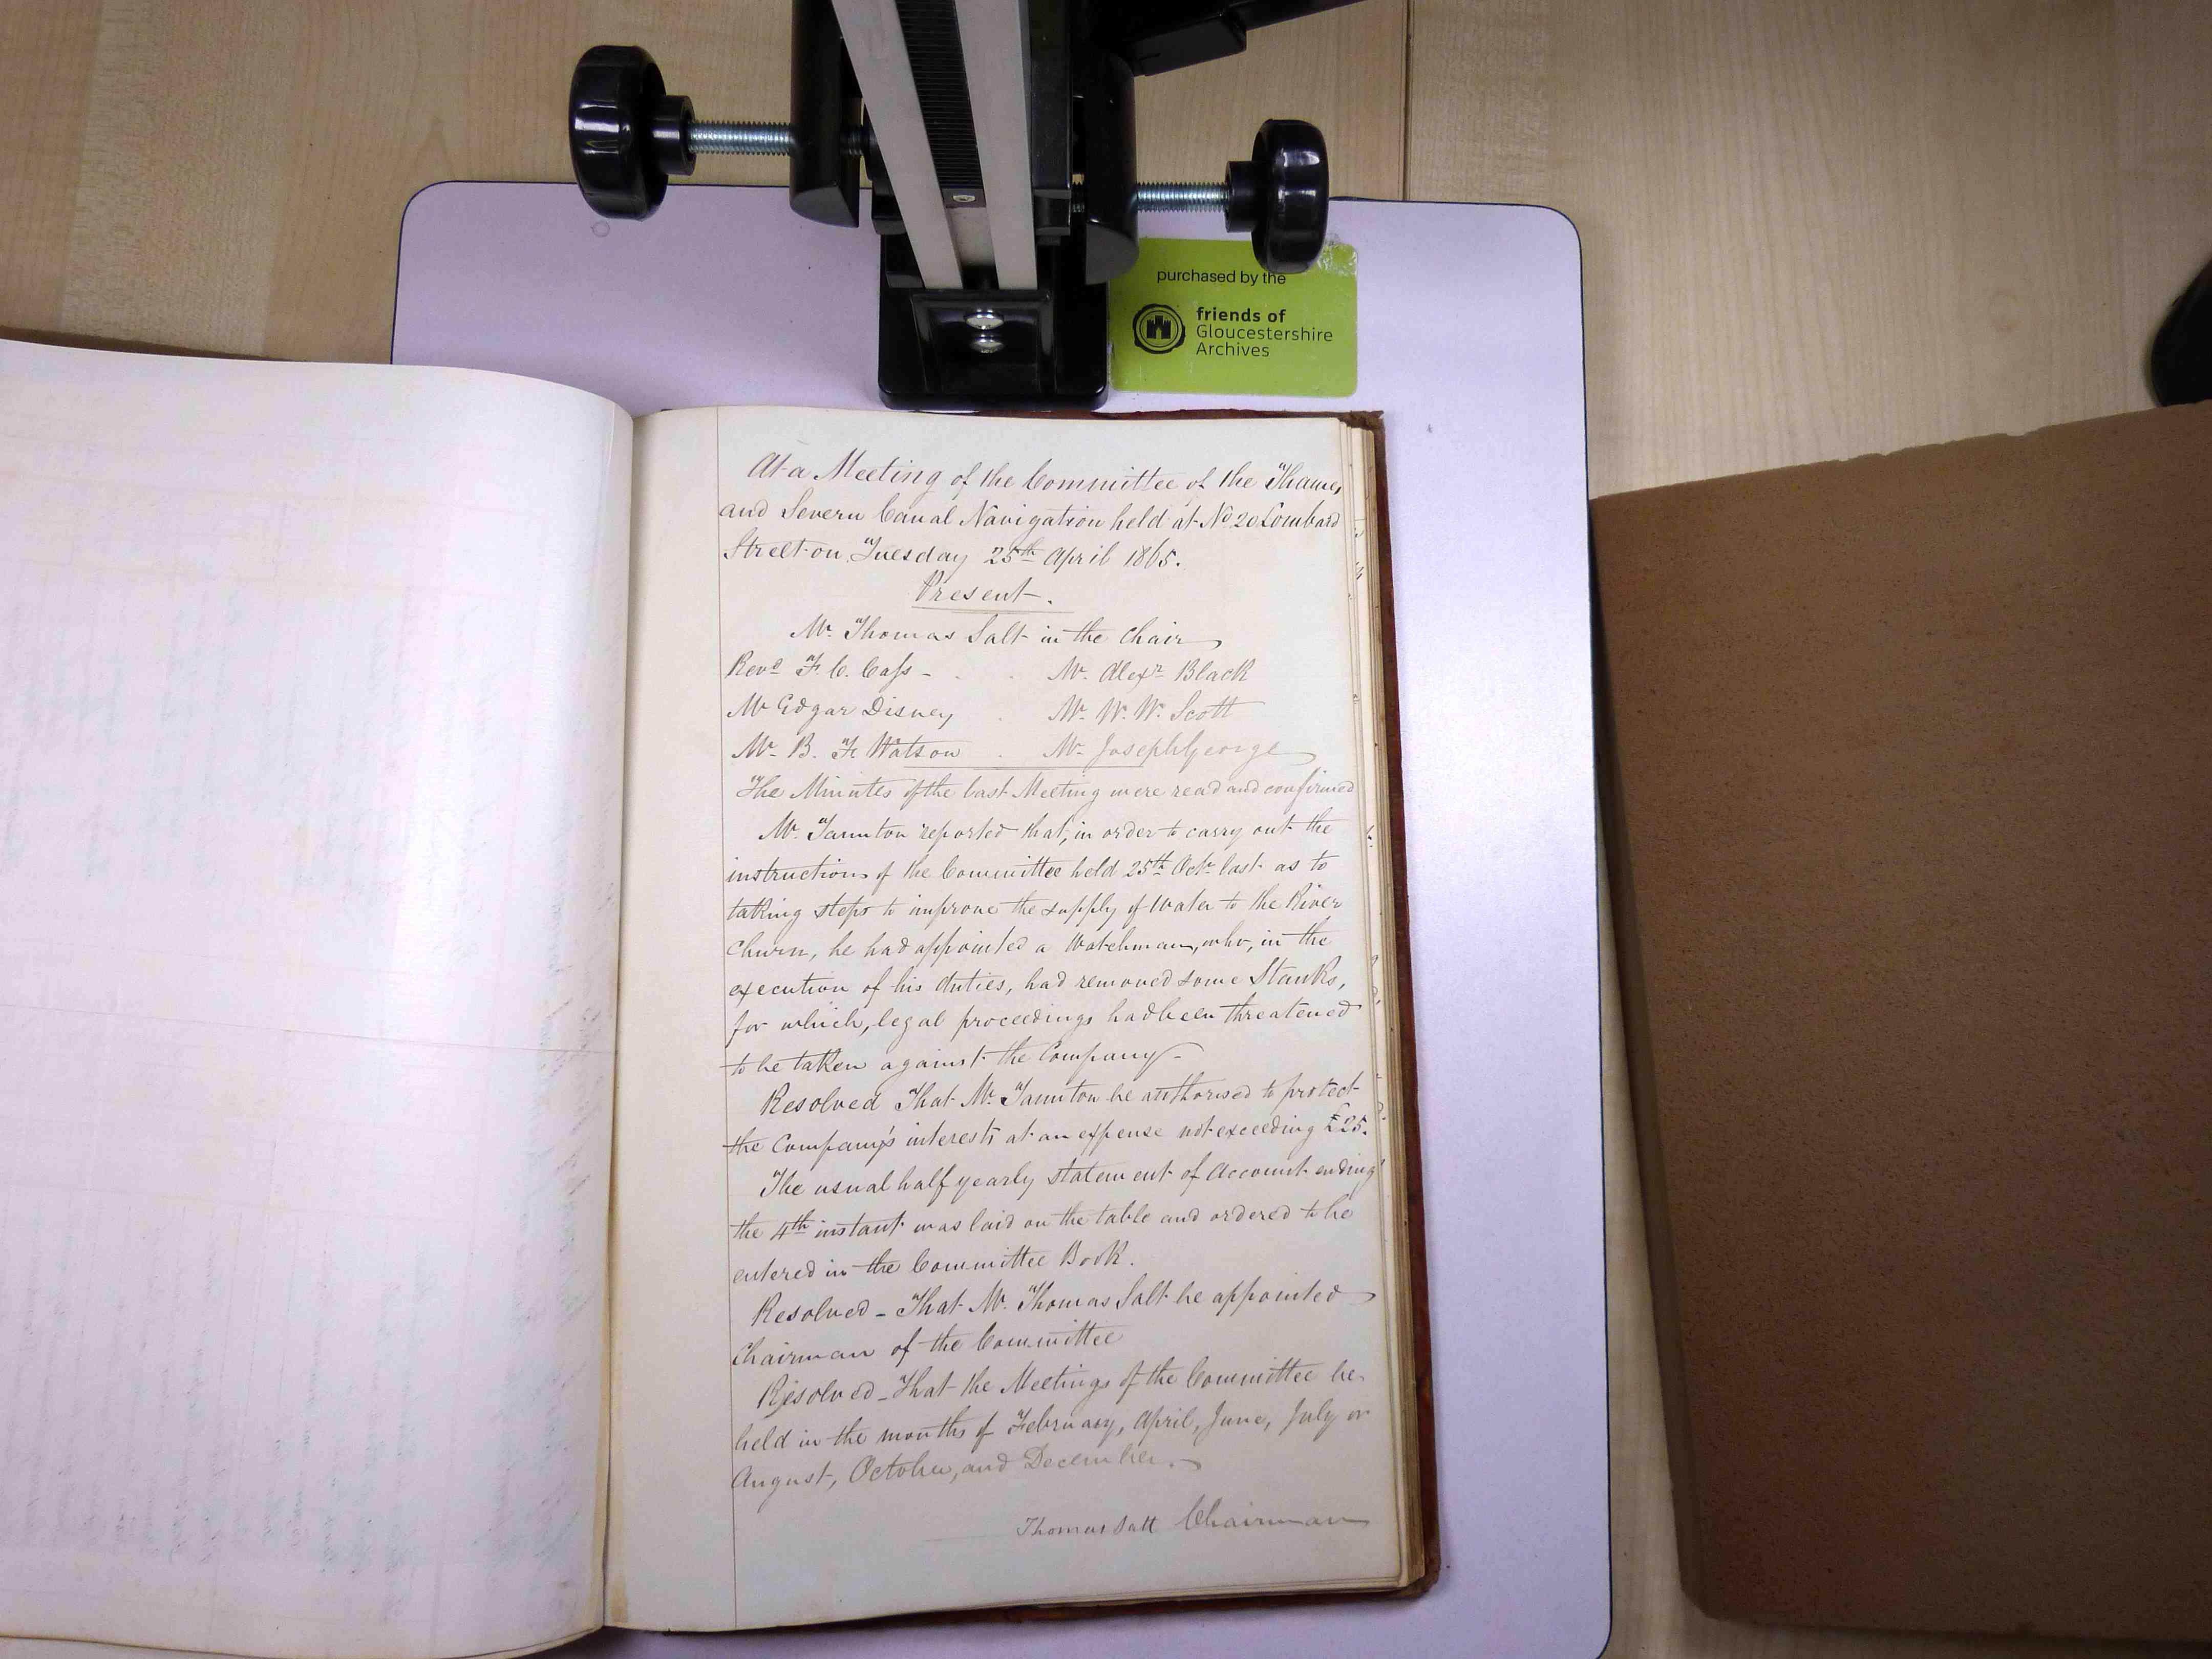 purchased by the
friends of
Gloucestershire
Archives
At a Meeting of the Committee of the Thames
and Severn Canal Navigation held at No 20 Lombard
Street on Tuesday 25th April 1865.
Present.
Mr. Thomas Salt in the Chair
Revd F. C. Cass - . . Mr. Alexr Black
Mr Edgar Disney . Mr. W. W. Scott
Mr. B. F. Watson . Mr. Joseph George
The Minutes of the last Meeting were read and confirmed
Mr. Taunton reported that, in order to carry out the
instructions of the Committee held 25th Octr last as to
taking steps to improve the supply of Water to the River
Churn, he had appointed a Watchman, who, in the
execution of his duties, had removed some Stanks,
for which, legal proceedings had been threatened
to be taken against the Company -
Resolved That Mr. Taunton be authorised to protect
the Company's interests at an expense not exceeding £25.
The usual half yearly statement of Account ending
the 4th instant was laid on the table and ordered to be
entered in the Committee Book.
Resolved - That Mr. Thomas Salt be appointed
Chairman of the Committee
Resolved - That the Meetings of the Committee be
held in the months of February, April, June, July or
August, October, and December.
Thomas Salt Chairman